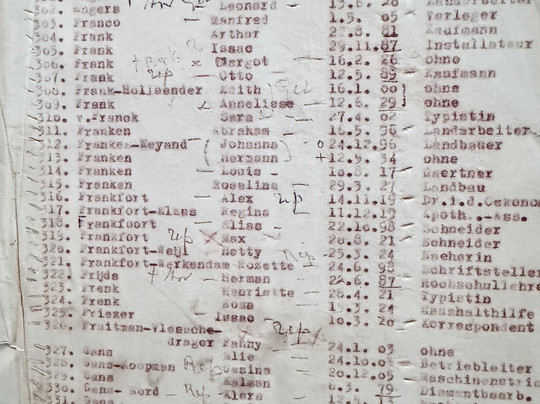 302. Angers Leonard
303. Franco Manfred 1.5. 05 Verleger
304. Frank Arthur 81 Kaufmann
305. Frank Isaac 29.11.87 Installateur
306. Frank Margot 16.2. 26 ohne
307. Frank Otto 12.5. 89 Kaufmann
308. Frank-Hollaender Edith 16.1. 00 ohne
309. Frank Anneliese 12.6. 29 ohne
310. v.Franck Sara 27.4. 02 Typistin
311. Franken Abraham 16.5. 96 Landarbeiter
312. Franken-Weyand Johanna 24.12.96 Landbauer
313. Franken Hermann 12.9. 34 ohne
314. Franken Louis 10.8. 17 Gaertner
315. Franken Roseline 29.3. 27 Landbau
316. Frankfort Alex 14.11.19 Dr.i.d.Oekonom
317. Frankfort-Elsas Regina 11.12.19 Apoth.-Ass.
318. Frankfoort Elias 22.10.98 Schneider
319. Frankfort Max 20.8. 21 Schneider
320. Frankfort-Weijl Hetty 25.3. 24 Naeherin
321. Frankfort-Werkendam Rozette 24.6. 93 Schriftsteller
322. Frijda Herman 22.6. 87 Hochschullehrer
323. Frenk Henriette 20.4. 21 Typistin
324. Frenk Rosa 13.3. 24 Haushalthilfe
325. Friezer Isaac 10.3. 20 Korrespondent
326. Fruitman-Vlessche-
drager Fanny 24.1. 03 ohne
327. Gans Elie 24.10. Betriebleiter
328. Gans-Koopman 20.12.05 Maschinenstric
329. Gans Kalman 6.3. 79 Diamantbearb.
330. Gans- Klara
331. Gans